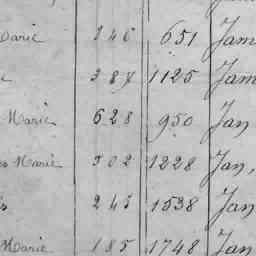 Marie 346 651 Jan
387 1125 Jan
Marie 628 950 Jan
Marie 502 1228 Jan,
245 1538 Jan
Marie 185 1748 Jan